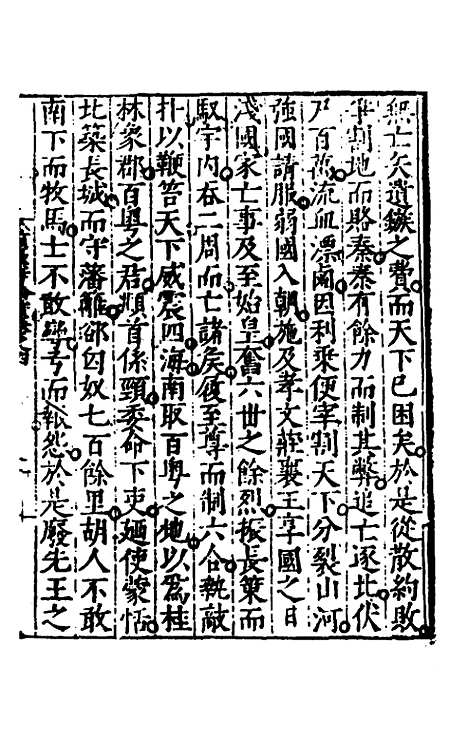 無亡矢遺鏃之費而天下已困矣於是從散約敗
爭割地而賂秦秦有餘力而制其弊追亡逐北伏
尸百萬流血漂鹵因利乗便宰割天下分裂山河
強國請服弱國入朝施及孝文莊襄王享國之日
淺國家亡事及至始皇奮六世之餘烈振長策而
馭宇内吞二周而亡諸矦履至尊而制六合執敲
扑以鞭笞天下威震四海南取百粤之地以爲桂
林象郡百粤之君頫首係頸委命下吏廼使蒙恬
北築長城而守藩籬郤匈奴七百餘里胡人不敢
南下而牧馬士不敢彎弓而報怨於是廢先王之